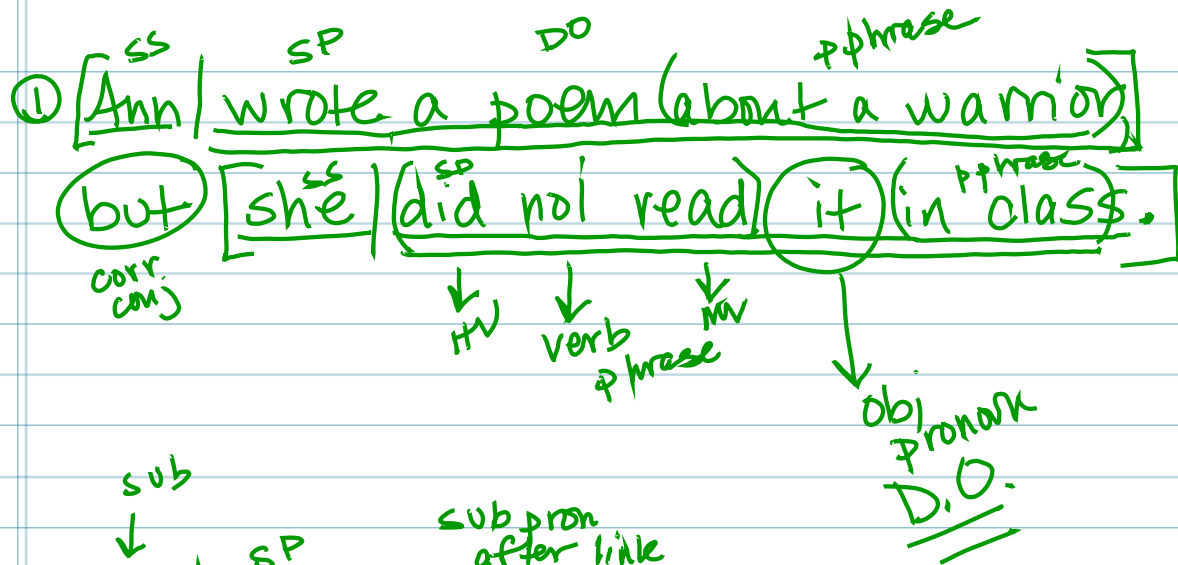 SS SP DO pphrase
① [Ann | wrote a poem (about a warrior)]
but [she | (did not read) it (in class).]
SS SP pphrase
corr conj
HV verb phrase MV
obj pronoun
D.O.
sub
SP
sub pron
after link